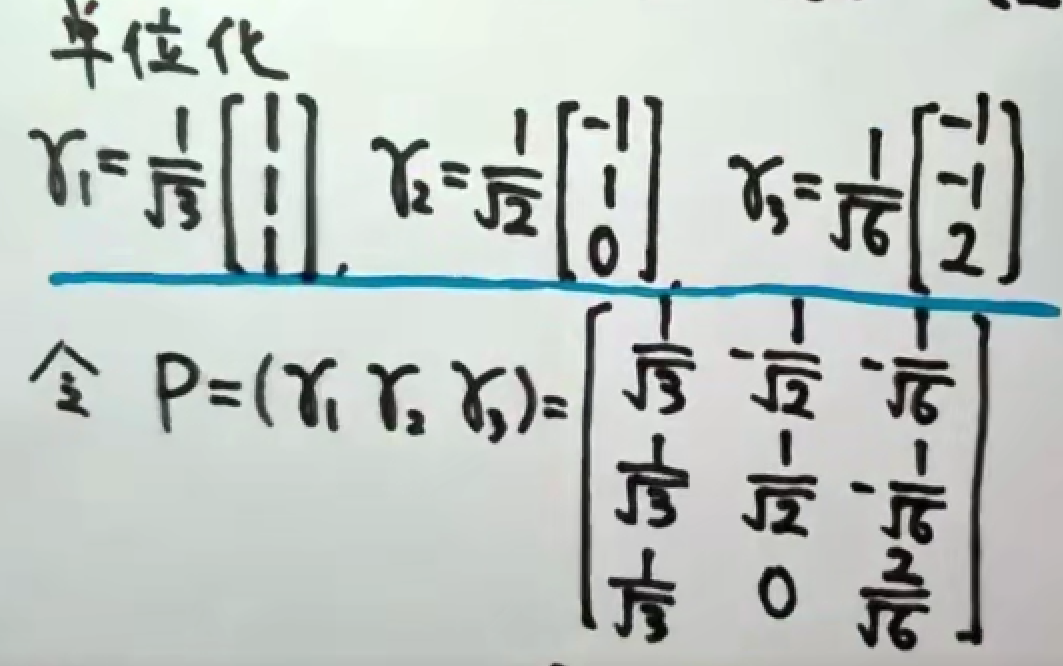 单位化
γ₁=1/√3 [1 1 1], γ₂=1/√2 [-1 1 0], γ₃=1/√6 [-1 -1 2]
令 P=(γ₁ γ₂ γ₃)= [1/√3 -1/√2 -1/√6
1/√3 1/√2 -1/√6
1/√3 0 2/√6]